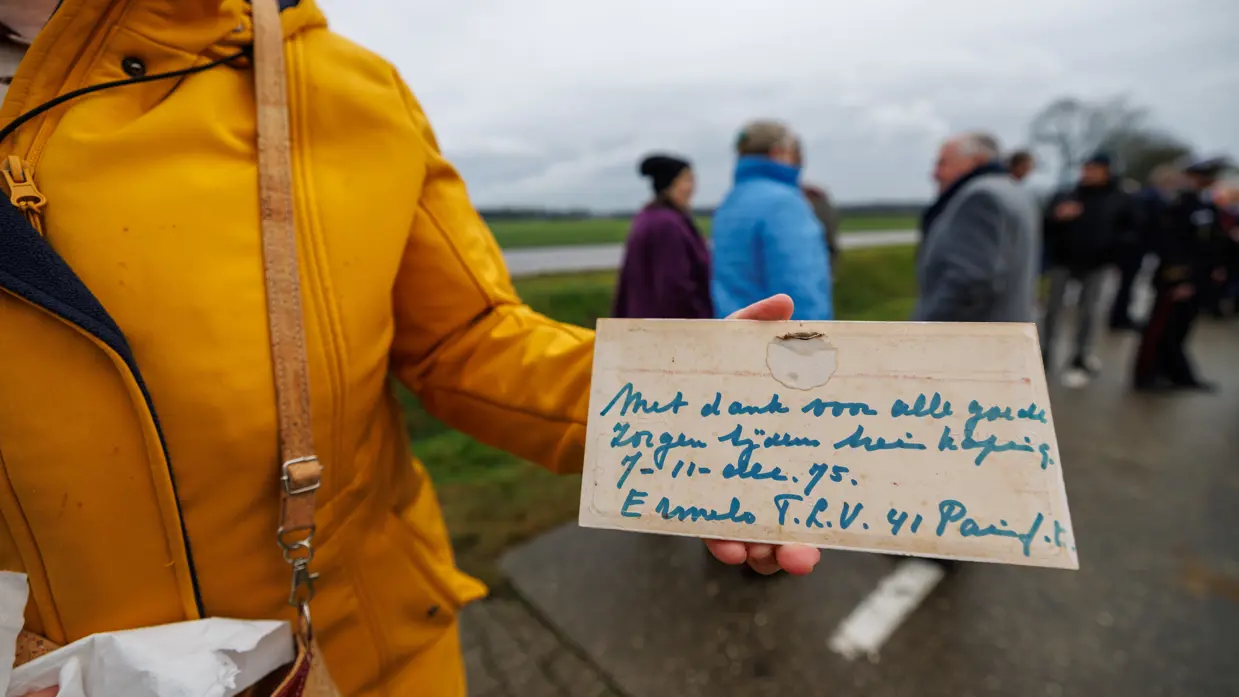 Met dank voor alle goede
zorgen tijdens trein kaping.
7-11-dec. 75.
Ermelo 41